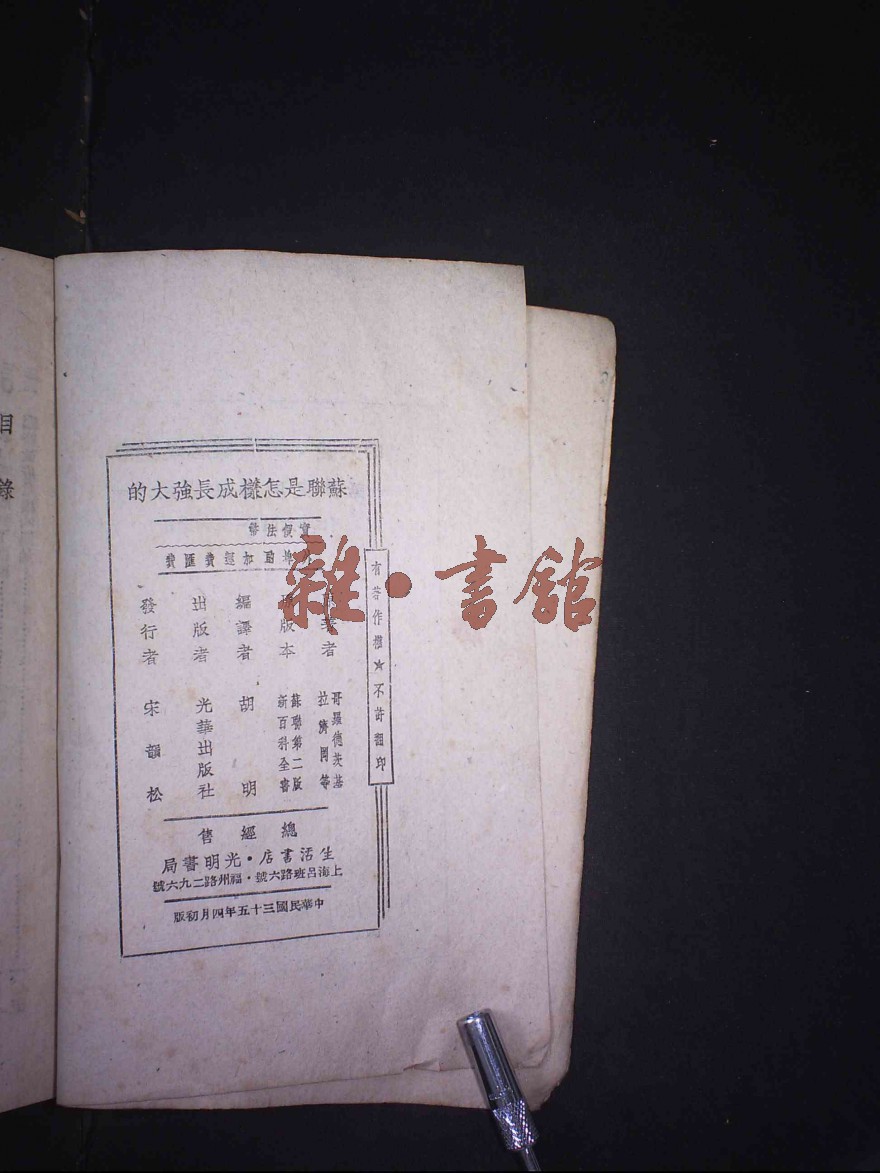 蘇聯是怎樣成長強大的
實價法幣
外埠酌加運費匯費
有著作權★不許翻印
原著者 哥羅德茨基 拉濟同等
版本 蘇聯第二版新百科全書
編譯者 胡明
出版者 光華出版社
發行者 宋韻松
總經售
生活書店・光明書局
上海呂班路六號・福州路二九六號
中華民國三十五年四月初版
雜・書館
目錄